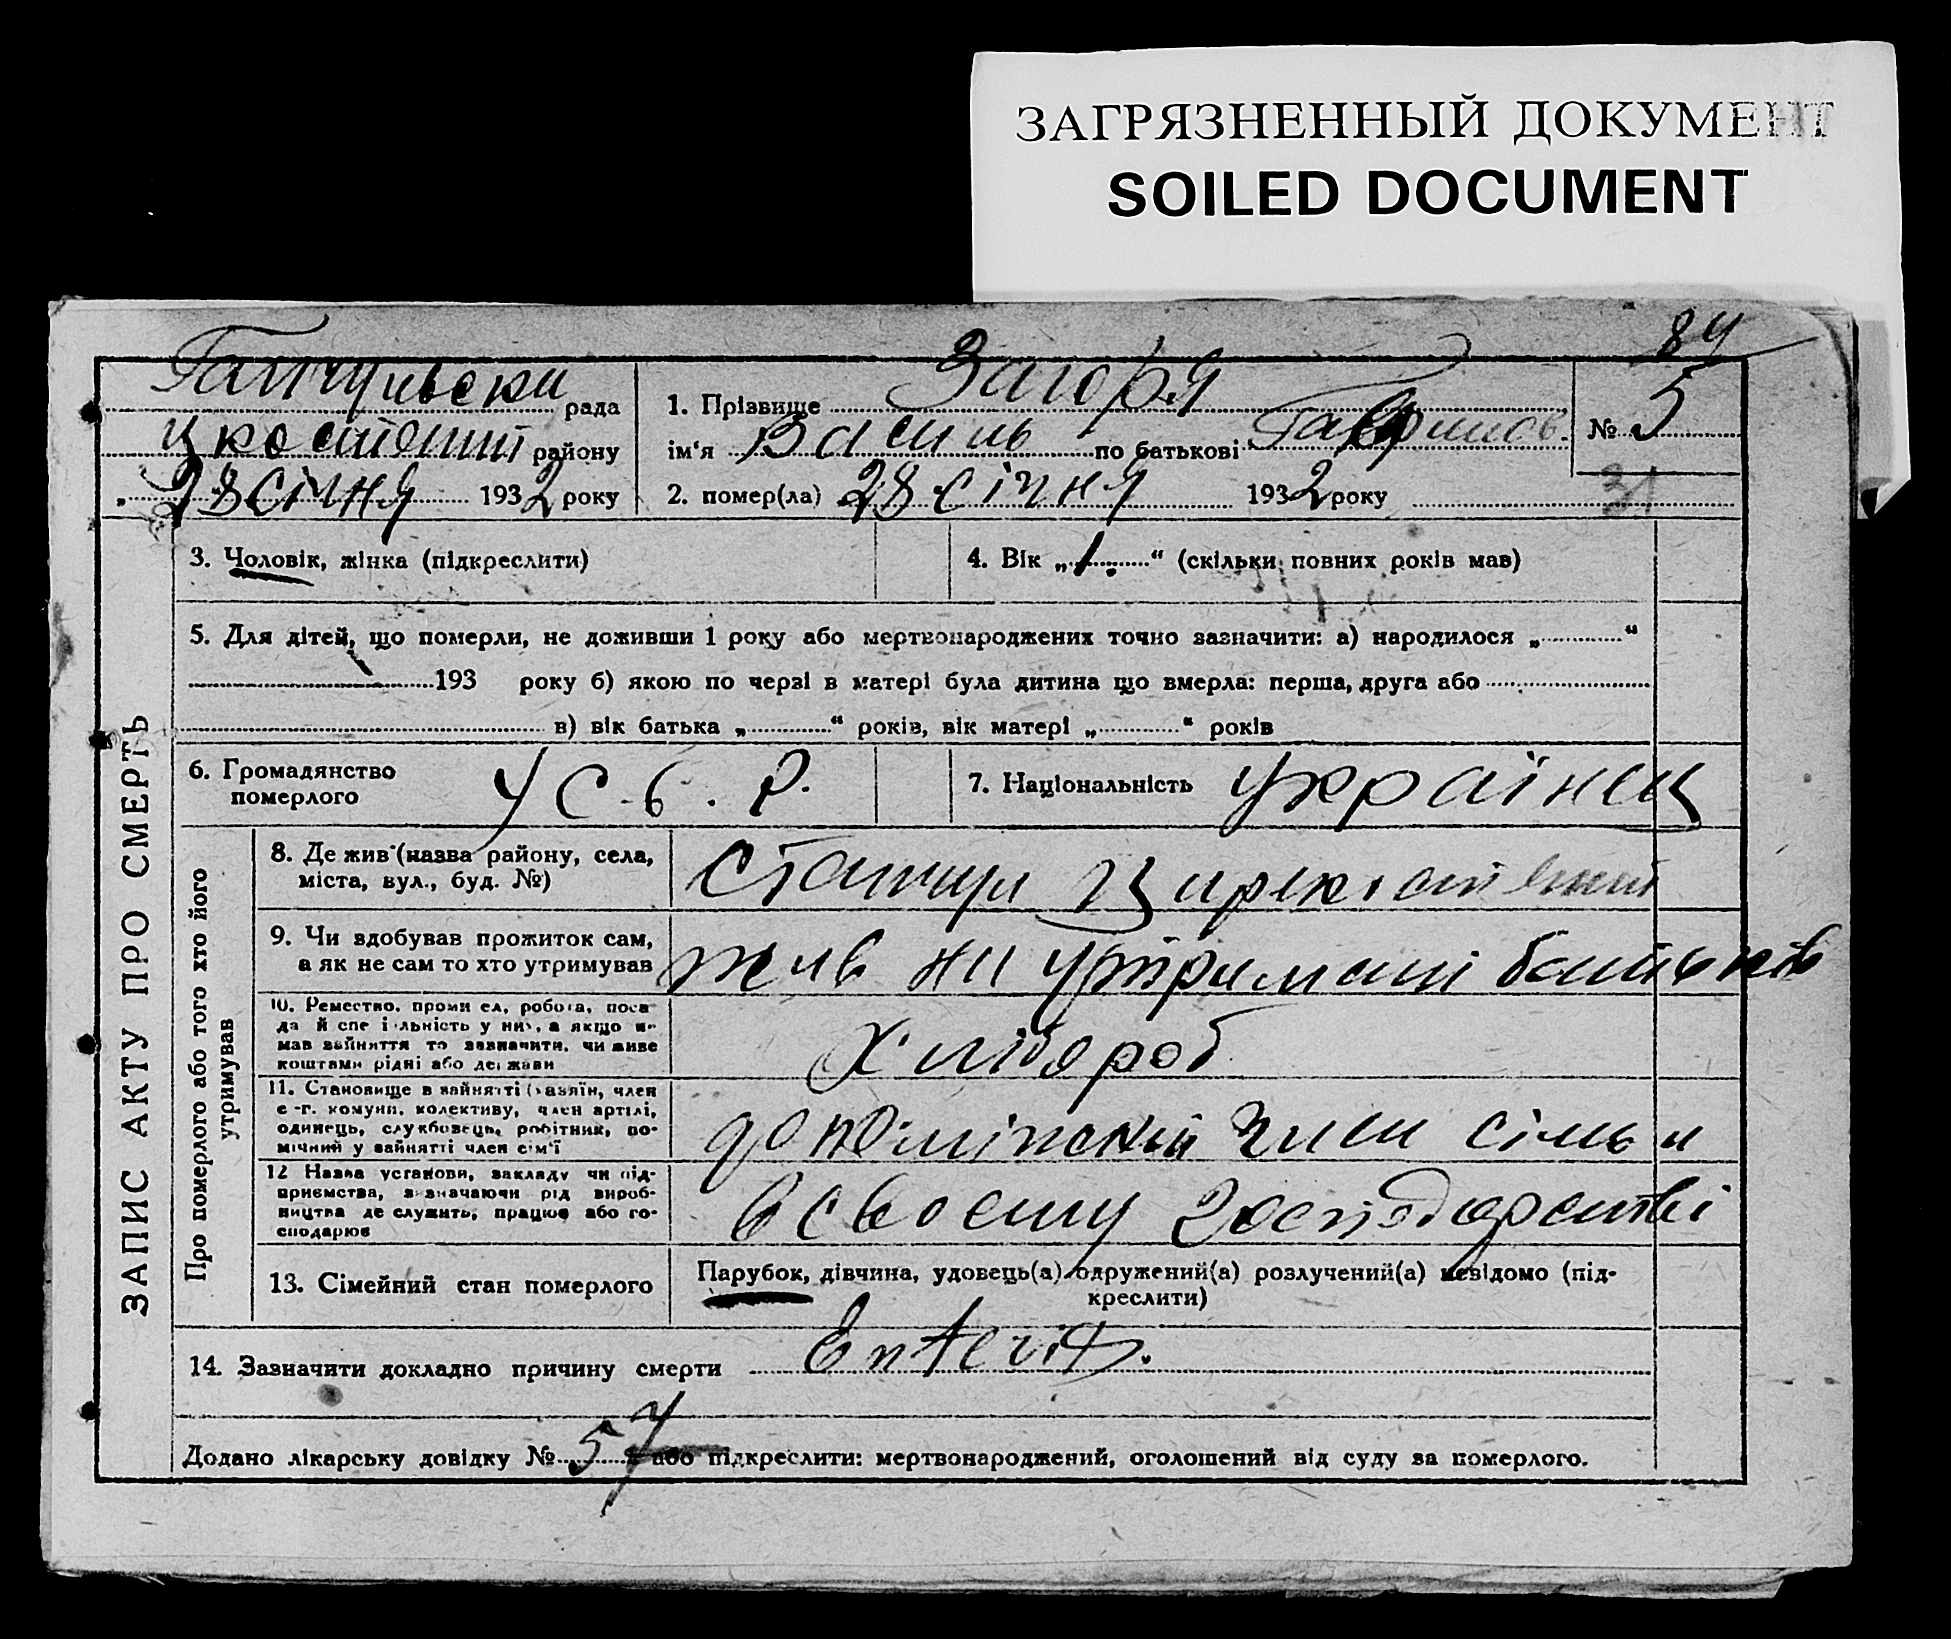 ЗАГРЯЗНЕННЫЙ ДОКУМЕНТ
SOILED DOCUMENT
84
рада
району
28 січня 1932 року
1. Прізвище Загоря
ім'я Василь по батькові
2. помер(ла) 28 січня 1932 року
№ 5
31
ЗАПИС АКТУ ПРО СМЕРТЬ
3. Чоловік, жінка (підкреслити)
4. Вік „1.“ (скільки повних років мав)
5. Для дітей, що померли, не доживши 1 року або мертвонароджених точно зазначити: а) народилося „ “
193 року б) якою по черзі в матері була дитина що вмерла: перша, друга або
в) вік батька „ “ років, вік матері „ “ років
6. Громадянство
померлого
У С. С. Р.
7. Національність Українец
Про померлого або того хто його
утримував
8. Де жив (назва району, села,
міста, вул., буд. №)
9. Чи здобував прожиток сам,
а як не сам то хто утримував
жив на утримані батьків
10. Ремество, проми ел, робота, поса-
да й спе і льність у них, а якщо н-
мав зайняття то зазначити, чи живе
коштами рідні або держави
Хлібороб
11. Становище в зайнятті (хазяїн, член
с.-г. комуни, колективу, член артілі,
одинець, службовець, робітник, по-
мічний у зайнятті член сім'ї
член сімьи
12 Назва установи, закладу чи під-
приємства, зазначаючи рід вироб-
ництва де служить, працює або го-
сподарює
в своему господарстві
13. Сімейний стан померлого
Парубок, дівчина, удовець(а) одружений(а) розлучений(а) невідомо (під-
креслити)
14. Зазначити докладно причину смерти Enterit.
Додано лікарську довідку № 57 або підкреслити: мертвонароджений, оголошений від суду за померлого.